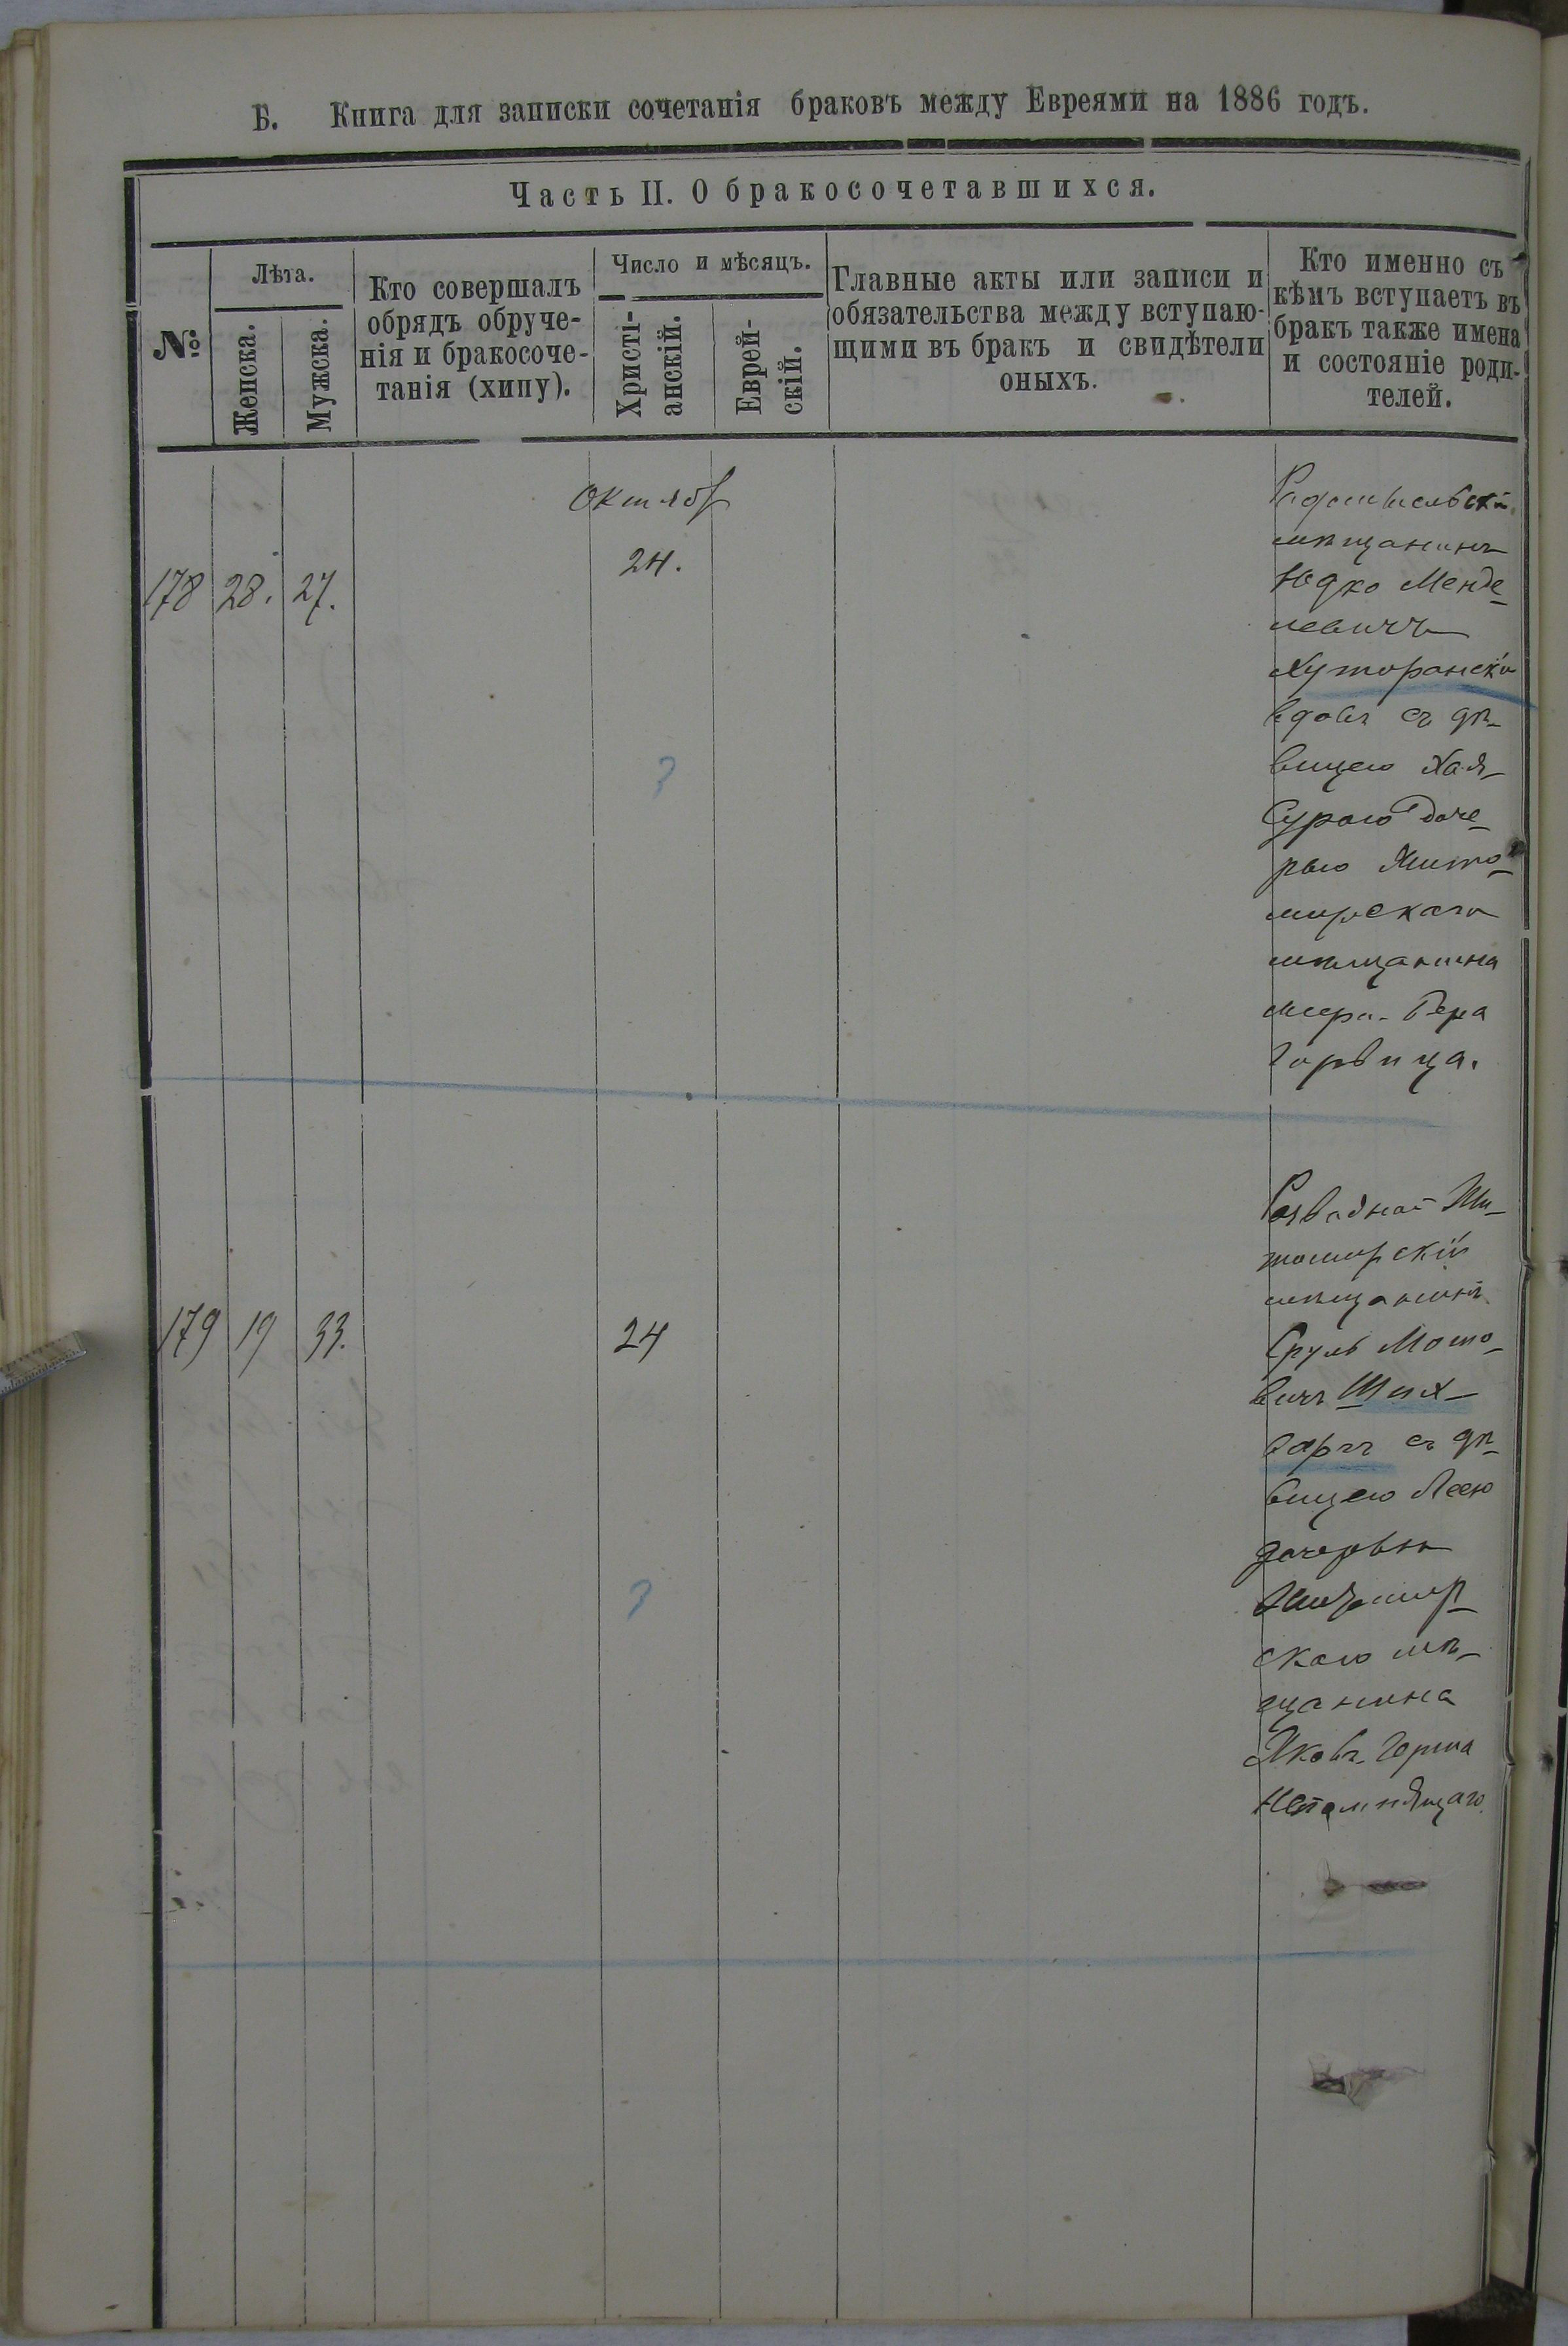 Б. Книга для записки сочетанія браковъ между Евреями на 1886 годъ.
Часть II. О бракосочетавшихся.
№
Лѣта.
Женска.
Мужска.
Кто совершалъ
обрядъ обруче-
нія и бракосоче-
танія (хипу).
Число и мѣсяцъ.
Христі-
анскій.
Еврей-
скій.
Главные акты или записи и
обязательства между вступаю-
щими въ бракъ и свидѣтели
оныхъ.
Кто именно съ
кѣмъ вступаетъ въ
бракъ также имена
и состояніе роди-
телей.
Октябр
178 28. 27.
24.
?
Радомысльскій
мѣщанинъ
Юдко Менде-
левичъ
Хуторанскій
вдовъ съ дѣ-
вицею Хая-
Сурою доче-
рью Жито-
мирскаго
мѣщанина
Меера-Бера
Горвица.
179 19 33.
24
?
Разводной Жи-
томирскій
мѣщанинъ
Сруль Мото-
вичъ Ших-
съ дѣ-
вицею Леею
дочерью
Житомир-
скаго мѣ-
щанина
Яковъ-Герша
Непомнящаго.